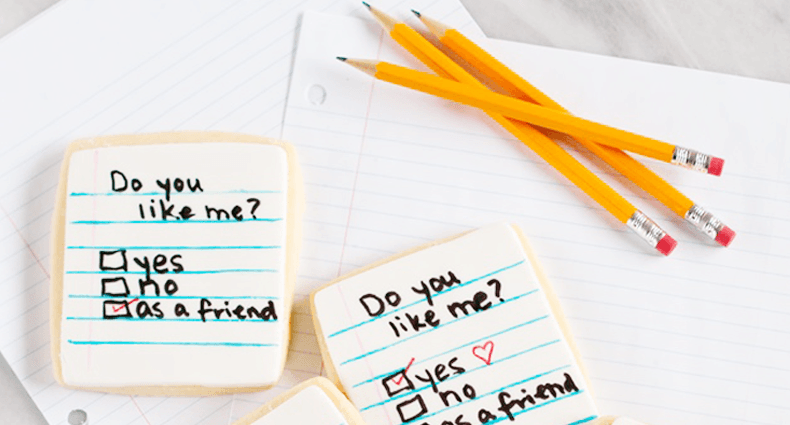 Do you
like me?
yes
no
as a friend
Do you
like me?
yes
no
as a friend